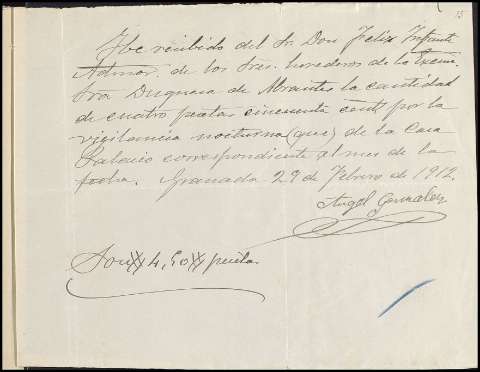 15
He recibido del Sr. Don Felix Infante
Admor. de los Sres. herederos de la Excma.
Sra Duquesa de Abrantes la cantidad
de cuatro pesetas cincuenta cents por la
vigilancia nocturna (gas) de la Casa
Palacio correspondiente al mes de la
fecha. Granada 29 de Febrero de 1912.
Angel Gonzalez
Son 4,50 pesetas